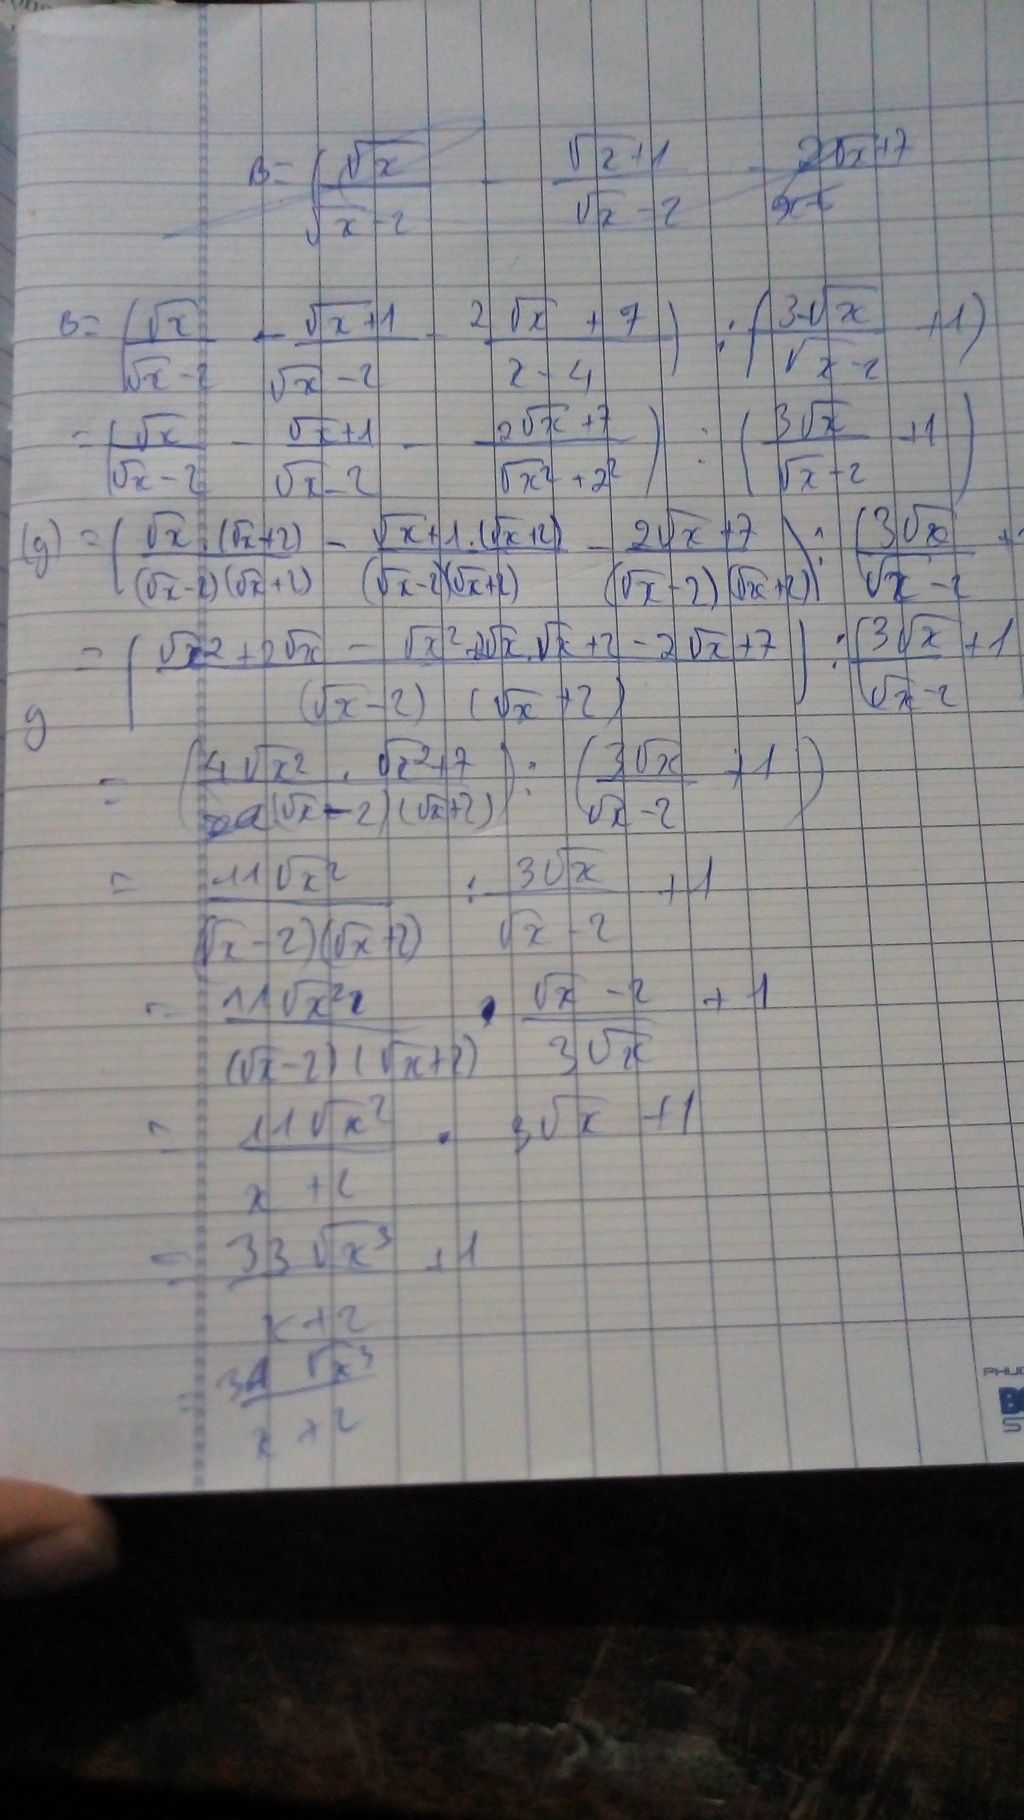 B = (√x / √x - 2 - √x + 1 / √x - 2 - 2√x + 7
B = (√x / √x - 2 - √x + 1 / √x - 2 - 2√x + 7 / x - 4) : (3√x / √x - 2 + 1)
= (√x / √x - 2 - √x + 1 / √x - 2 - 2√x + 7 / √x² + 2²) : (3√x / √x - 2 + 1)
(g) = (√x . (√x + 2) / (√x - 2)(√x + 2) - √x + 1 . (√x + 2) / (√x - 2)(√x + 2) - 2√x + 7 / (√x - 2)(√x + 2)) : (3√x / √x - 2 +
= (√x2 + 2√x - √x² 2√x . √x + 2 - 2√x + 7 / (√x - 2) (√x + 2)) : (3√x / √x - 2 + 1
g
= (4√x² . √x² + 7 / (√x - 2)(√x + 2)) : (3√x / √x - 2 + 1)
= 11√x² / (√x - 2)(√x + 2) : 3√x / √x - 2 + 1
= 11√x² / (√x - 2)(√x + 2) . √x - 2 / 3√x + 1
= 11√x² / x + 2 . 3√x + 1
= 33√x³ / x + 2 + 1
= 34√x³ / x + 2
PHUC